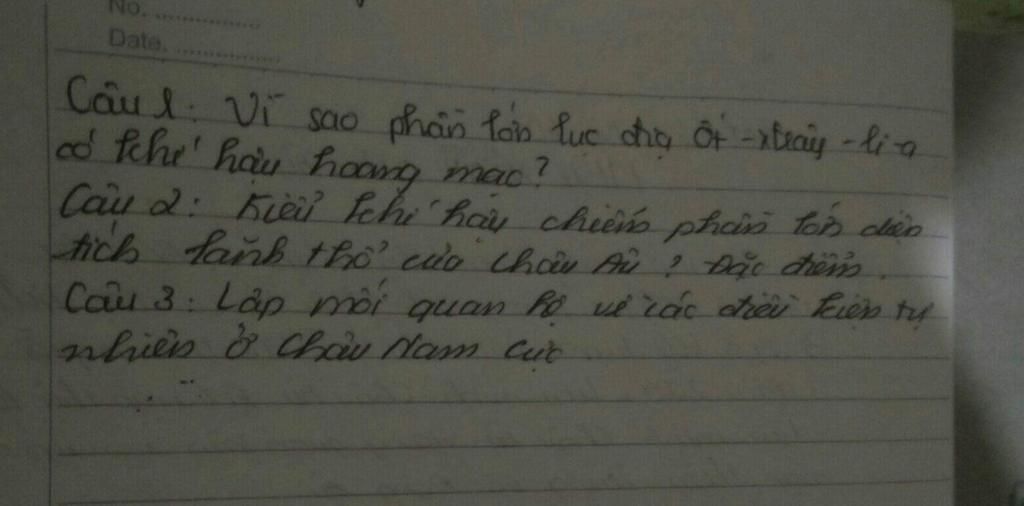 No. ................
Date. ................
Câu 1: Vì sao phần lớn lục địa Ốt-xtrây-li-a
có khí hậu hoang mạc?
Câu 2: Kiểu khí hậu chiếm phần lớn diện
tích lãnh thổ của Châu Âu? Đặc điểm.
Câu 3: Lập mối quan hệ về các điều kiện tự
nhiên ở Châu Nam Cực